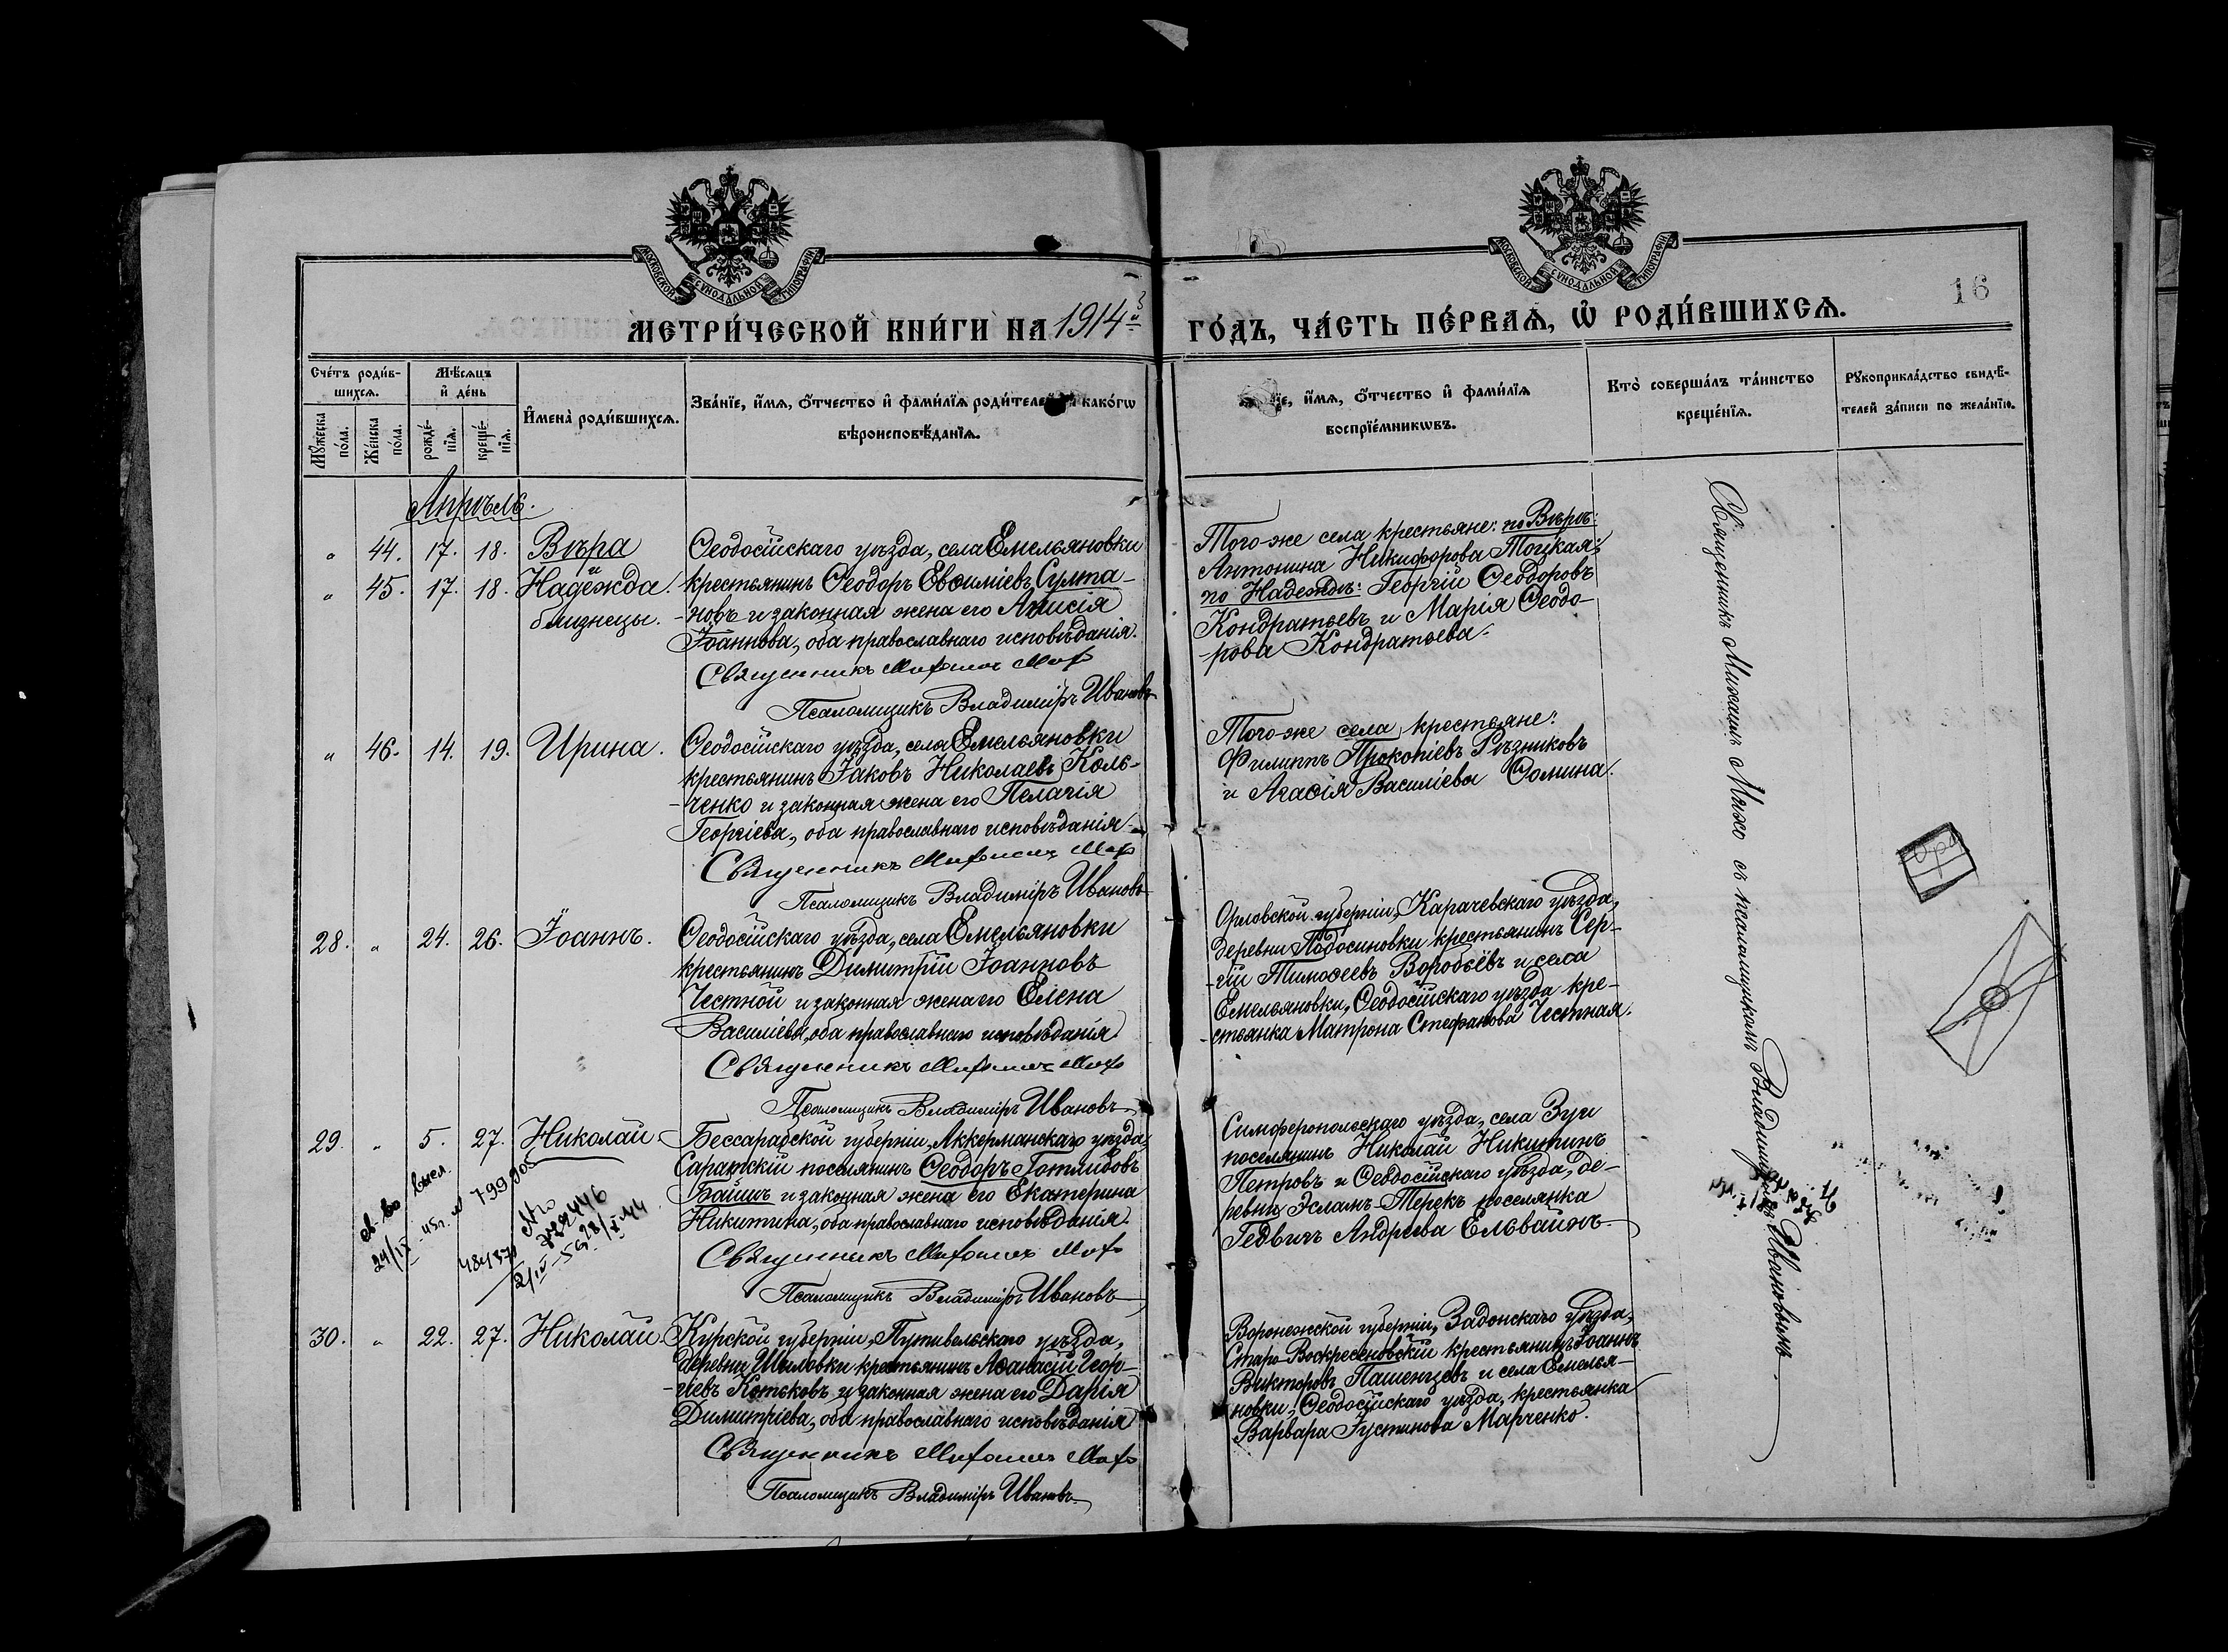 МОСКОВСКОЙ СѴНОДАЛЬНОЙ ТИПОГРАФІИ
МОСКОВСКОЙ СѴНОДАЛЬНОЙ ТИПОГРАФІИ
16
МЕТРИ́ЧЕСКОЙ КНИ́ГИ НА 1914й ГО́ДЪ, ЧА́СТЬ ПЕ́РВАѦ, Ѡ҆ РОДИ́ВШИХСѦ.
Сче́тъ роди́в-
шихсѧ.
Мꙋ́жеска по́ла.
Же́нска по́ла.
Мѣ́сѧцъ
и҆ де́нь
рожде́-
нїѧ.
креще́-
нїѧ.
И҆мена̀ роди́вшихсѧ.
Зва́нїе, и҆́мѧ, ѻ҆́тчество и҆ фами́лїѧ роди́телей како́гѡ
вѣроисповѣ́данїѧ.
їе, и҆́мѧ, ѻ҆́тчество и҆ фами́лїѧ
воспрїе́мникѡвъ.
Кто̀ соверша́лъ та́инство
креще́нїѧ.
Рꙋкоприкла́дство свидѣ́-
телей за́писи по жела́нїю.
Апрѣль.
" 44. 17. 18. Вѣра
и
" 45. 17. 18. Надежда.
близнецы.
Ѳеодосійскаго уѣзда, села Емельяновки
крестьянинъ Ѳеодоръ Евѳиміевъ Султа-
-новъ и законная жена его Анисія
Іоаннова, оба православнаго исповѣданія.
Священникъ Михаилъ Мохо
Псаломщикъ Владиміръ Ивановъ
Того-же села крестьяне: по Вѣрѣ:
Антонина Никифорова Тоцкая;
по Надеждѣ: Георгій Ѳеодоровъ
Кондратьевъ и Марія Ѳеодо-
-рова Кондратьева.
" 46. 14. 19. Ирина.
Ѳеодосійскаго уѣзда, села Емельяновки
крестьянинъ Іаковъ Николаевъ Коль-
-ченко и законная жена его Пелагія
Георгіева, оба православнаго исповѣданія.
Священникъ Михаилъ Мохо
Псаломщикъ Владиміръ Ивановъ
Того-же села крестьяне:
Филиппъ Прокопіевъ Рѣзниковъ
и Агаѳія Василіева Ѳомина.
28. " 24. 26. Іоаннъ.
Ѳеодосійскаго уѣзда, села Емельяновки
крестьянинъ Димитрій Іоанновъ
Честной и законная жена его Елена
Василіева, оба православнаго исповѣданія
Священникъ Михаилъ Мохо
Псаломщикъ Владиміръ Ивановъ
Орловской губерніи, Карачевскаго уѣзда,
деревни Подосиновки крестьянинъ Сер-
-гій Тимоѳеевъ Воробьёвъ и села
Емельяновки, Ѳеодосійскаго уѣзда кре-
-стьянка Матрона Стефанова Честная.
29. " 5. 27. Николай
Бессарабской губерніи, Аккерманскаго уѣзда
Саратскій поселянинъ Ѳеодоръ Готлибовъ
Байшъ и законная жена его Екатерина
Никитина, оба православнаго исповѣданія.
Священникъ Михаилъ Мохо
Псаломщикъ Владиміръ Ивановъ
Симферопольскаго уѣзда, села Зуи
поселянинъ Николай Никитинъ
Петровъ и Ѳеодосійскаго уѣзда, де-
ревни Эсламъ-Терекъ поселянка
Гедвигъ Андреева Ельвайнъ
30. " 22. 27. Николай
Курской губерніи, Путивльскаго уѣзда,
деревни Шиловки крестьянинъ Аѳанасій Геор-
-гіевъ Котьковъ и законная жена его Дарія
Димитріева, оба православнаго исповѣданія
Священникъ Михаилъ Мохо
Псаломщикъ Владиміръ Ивановъ
Воронежской губерніи, Задонскаго уѣзда,
Старо-Воскресеновскій крестьянинъ Іоаннъ
Викторовъ Пашенцевъ и села Емелья-
новки, Ѳеодосійскаго уѣзда, крестьянка
Варвара Іустинова Марченко.
Священникъ Михаилъ Мохо съ псаломщикомъ Владиміромъ Ивановымъ.